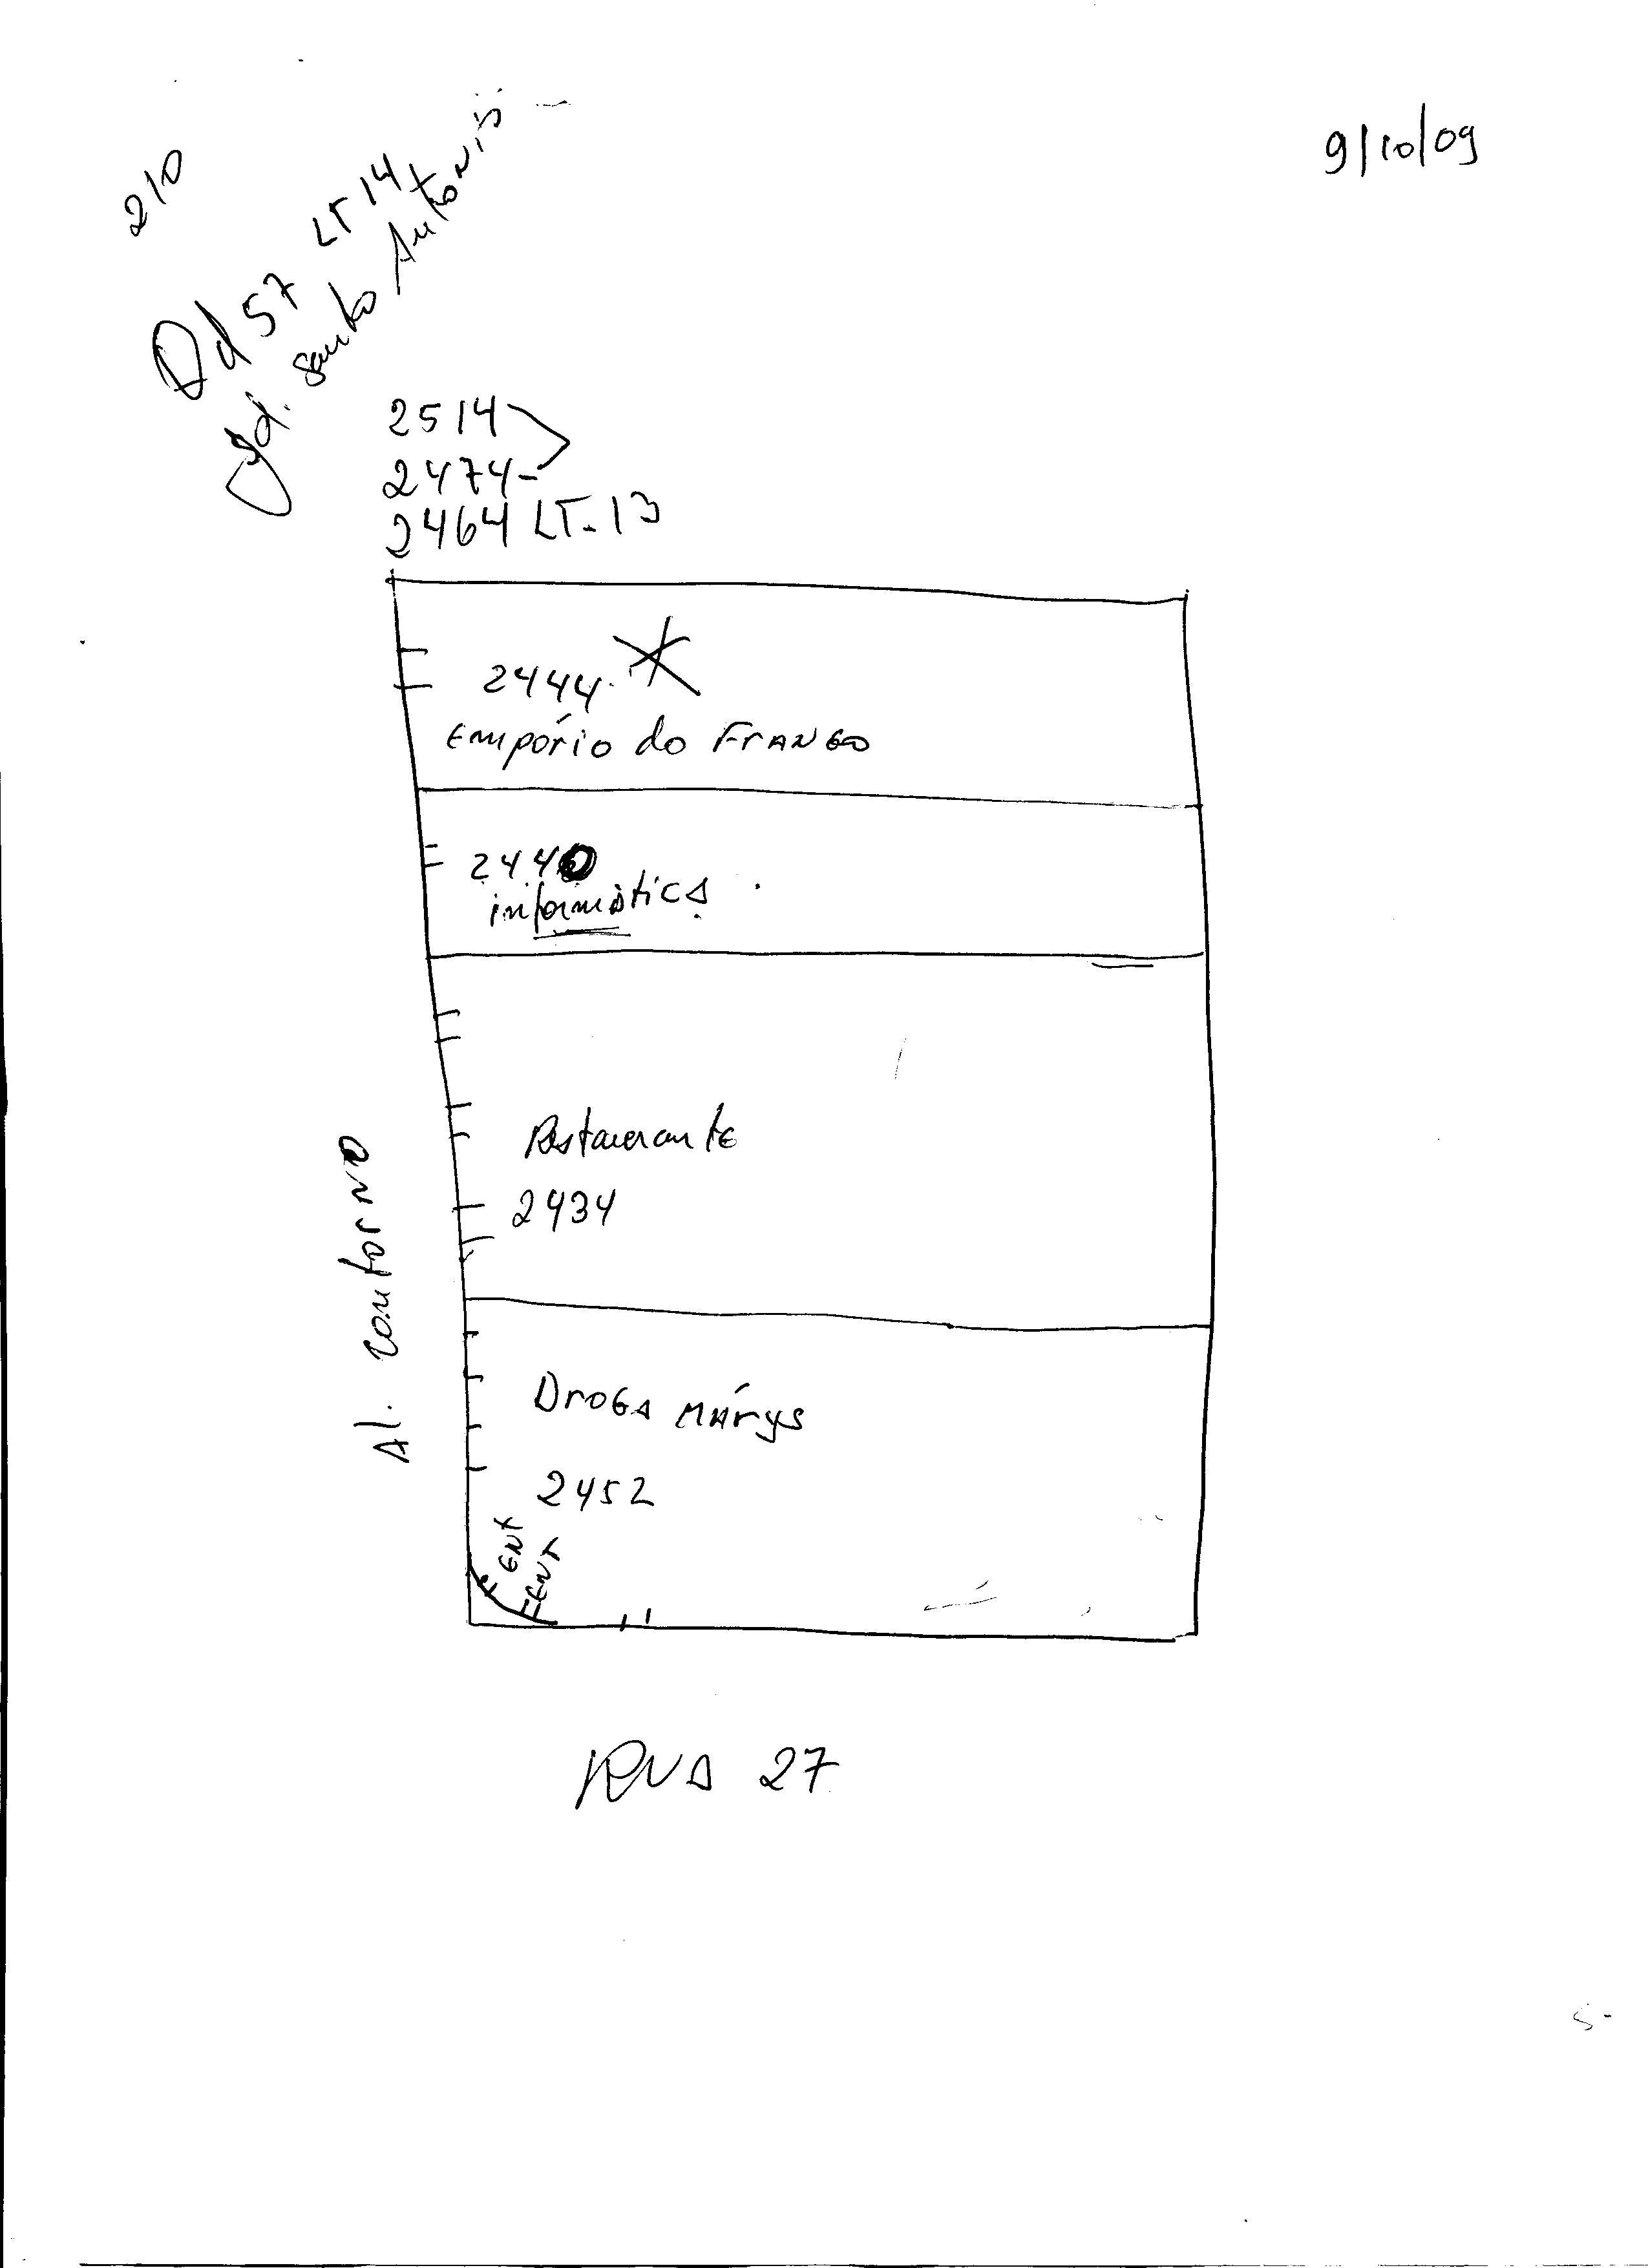 9/10/09
210
Qd 57 LT 14
Jd. Santo Antonio
2514
2474-
2464 LT-13
2444
Empório do FrANGO
2440
informáticA
Restaurante
2434
DroGA MÁrys
2452
ENT
ENT
Al. contorNO
RUA 27